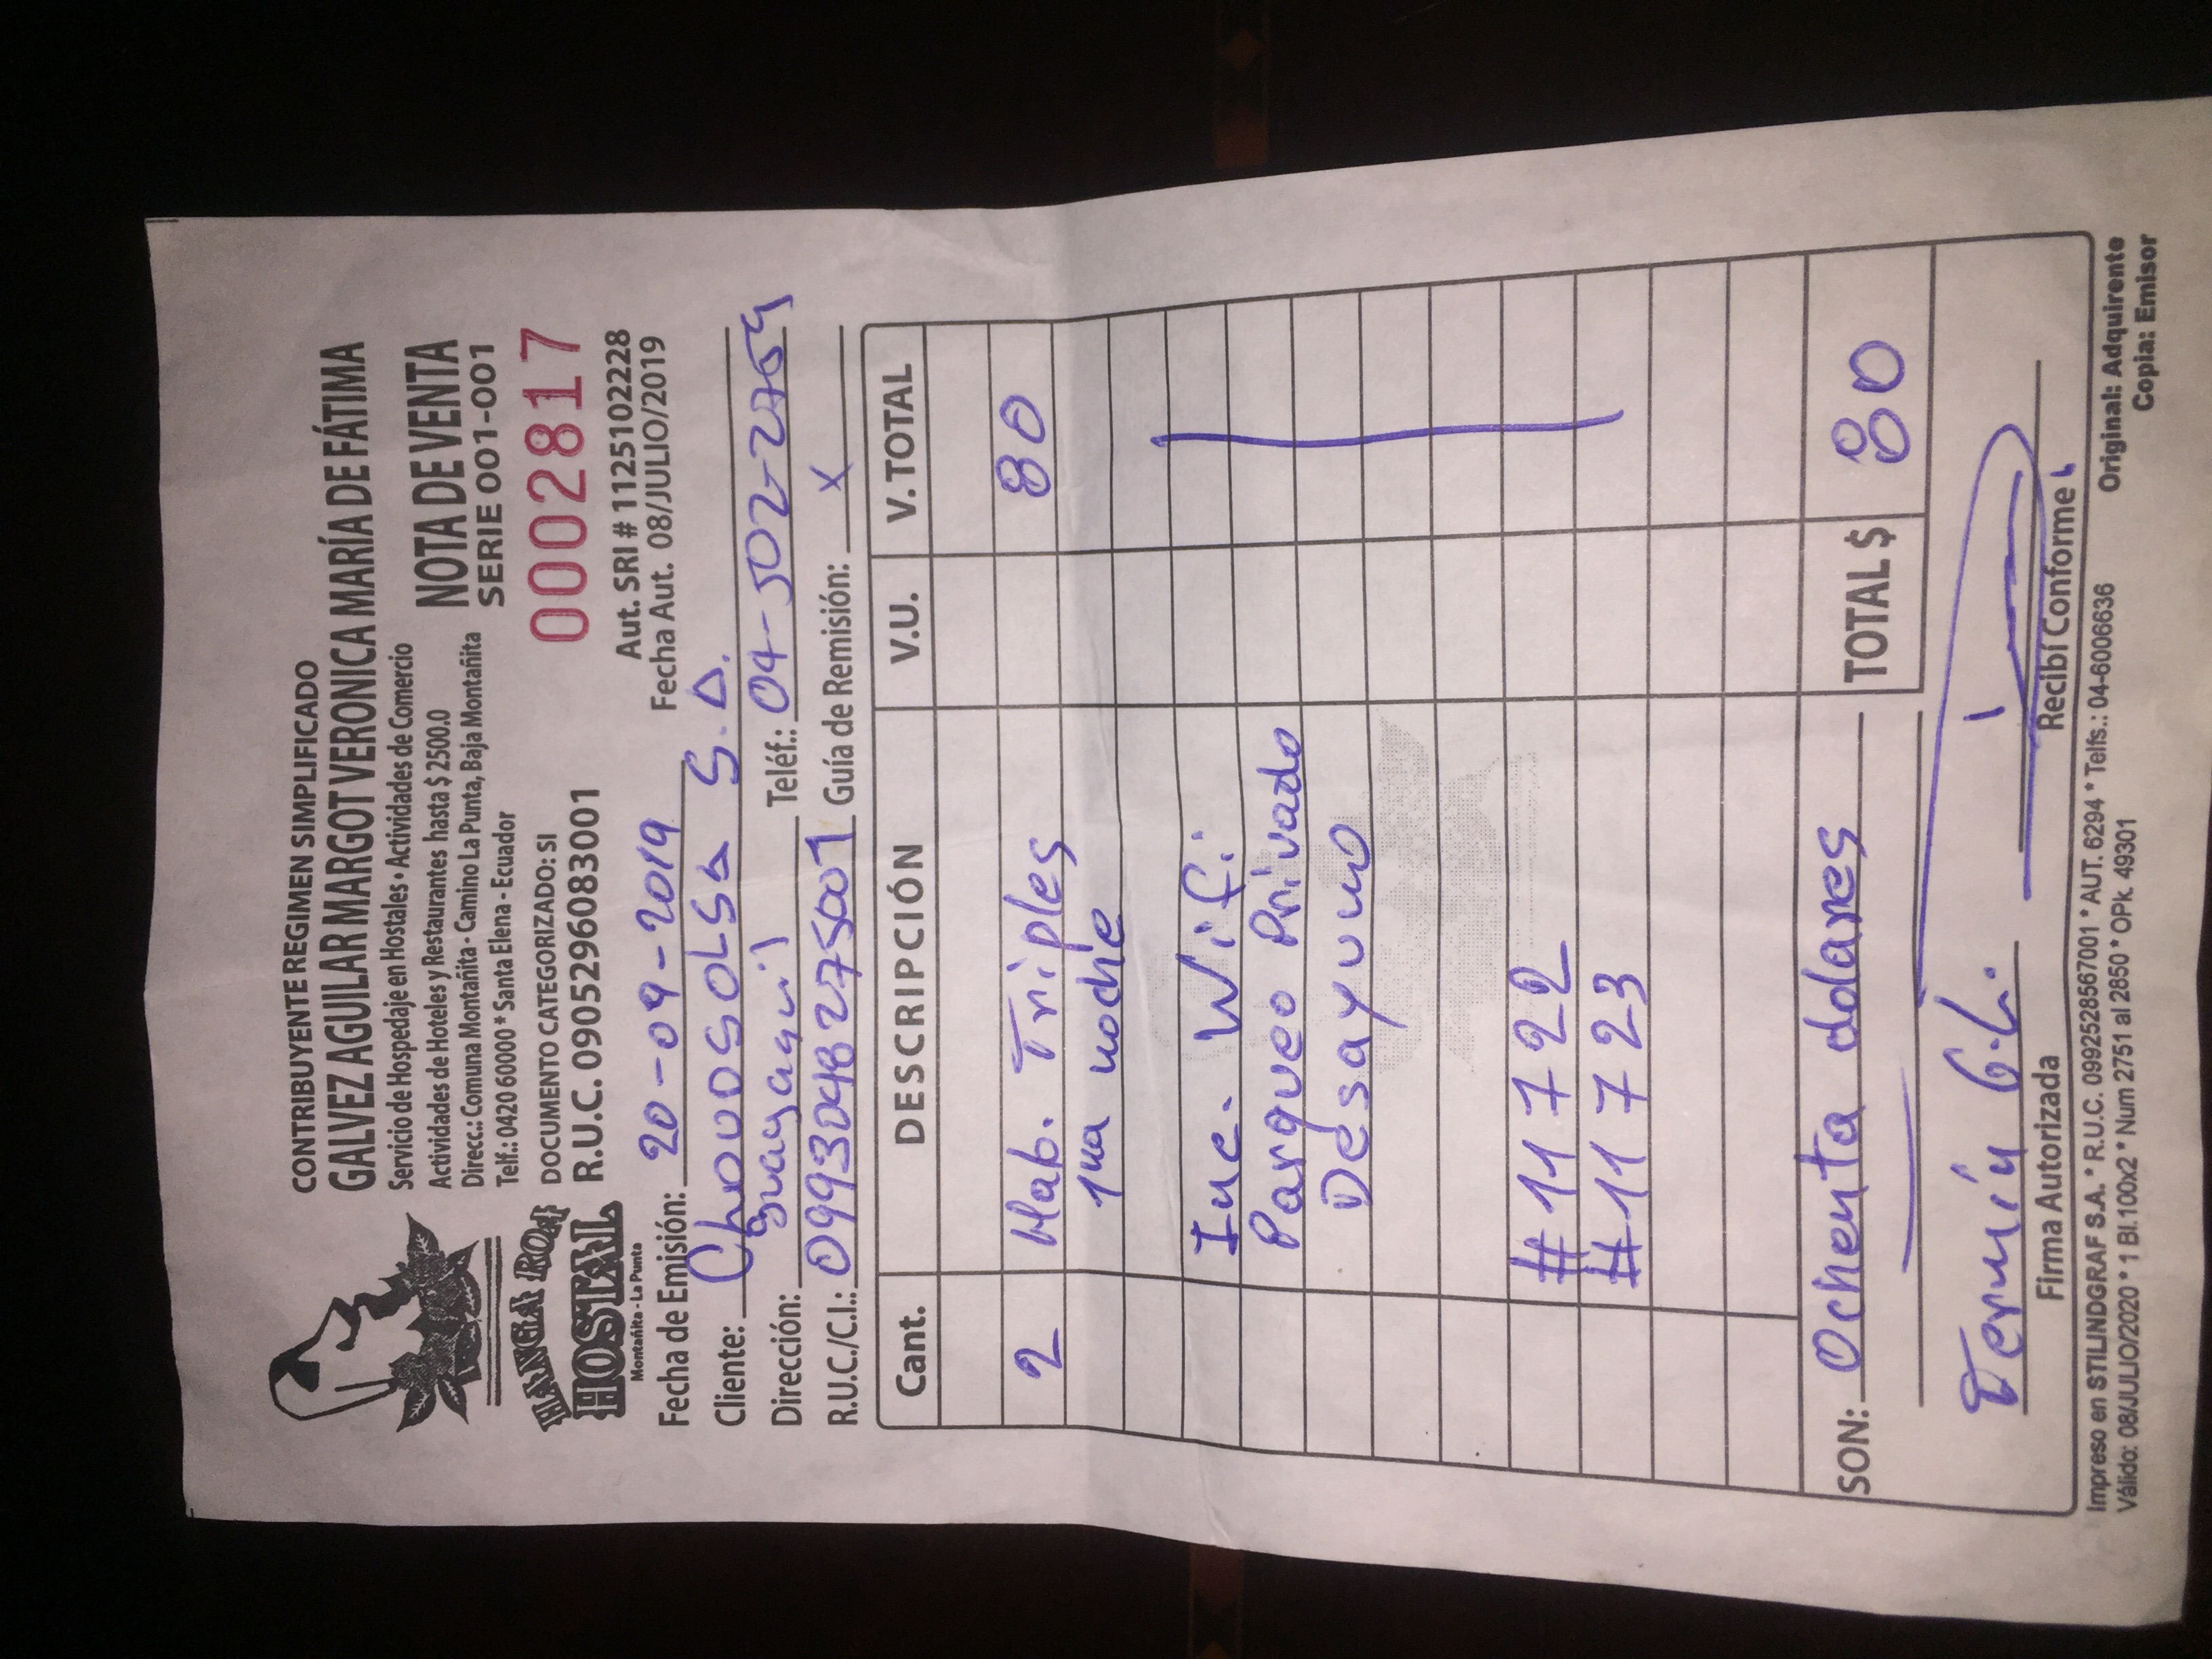 CONTRIBUYENTE REGIMEN SIMPLIFICADO
GALVEZ AGUILAR MARGOT VERONICA MARÍA DE FÁTIMA
Servicio de Hospedaje en Hostales • Actividades de Comercio
Actividades de Hoteles y Restaurantes hasta $ 2500.0
Direcc.: Comuna Montañita - Camino La Punta, Baja Montañita
Telf.: 0420 60000 * Santa Elena - Ecuador
DOCUMENTO CATEGORIZADO: SI
R.U.C. 0905296083001
NOTA DE VENTA
SERIE 001-001
0002817
Aut. SRI # 1125102228
Fecha Aut. 08/JULIO/2019
HANGA ROA
HOSTAL
Montañita - La Punta
Fecha de Emisión: 20-09-2019
Cliente: Chovosolsa S.A.
Dirección: Guayaquil Teléf.: 04-502-2759
R.U.C./C.I.: 0993048275001 Guía de Remisión: X
Cant. DESCRIPCIÓN V.U. V. TOTAL
2 Hab. Triples 80
1ra noche
Inc. Wifi
Parqueo Privado
Desayuno
#11722
#11723
SON: Ochenta dolares TOTAL $ 80
Fermín G.L.
Firma Autorizada Recibí Conforme
Impreso en STILINDGRAF S.A. * R.U.C. 0992528567001 * AUT. 6294 * Telfs.: 04-6006636
Válido: 08/JULIO/2020 * 1 Bl.100x2 * Num 2751 al 2850 * OPk. 49301
Original: Adquirente
Copia: Emisor